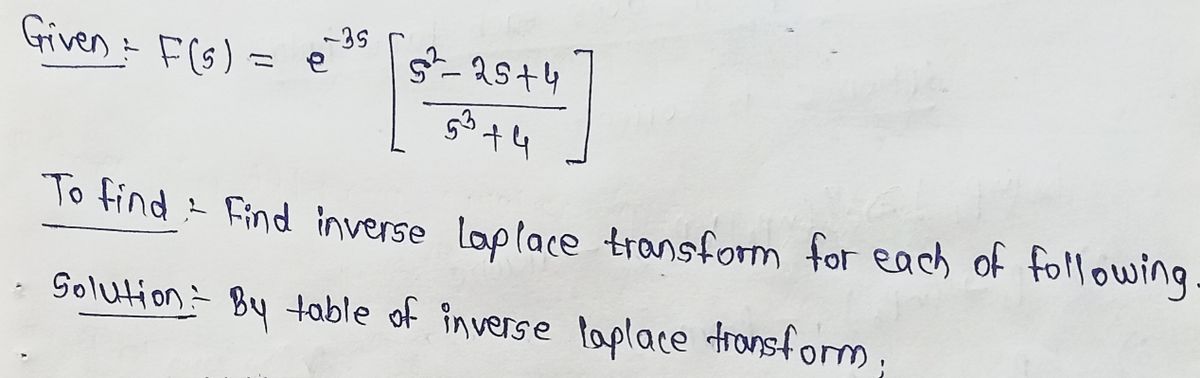 Given :- F(s) = e^-3s [ s²-2s+4 / s³+4 ]
To find :- Find inverse Laplace transform for each of following.
Solution :- By table of inverse laplace transform;